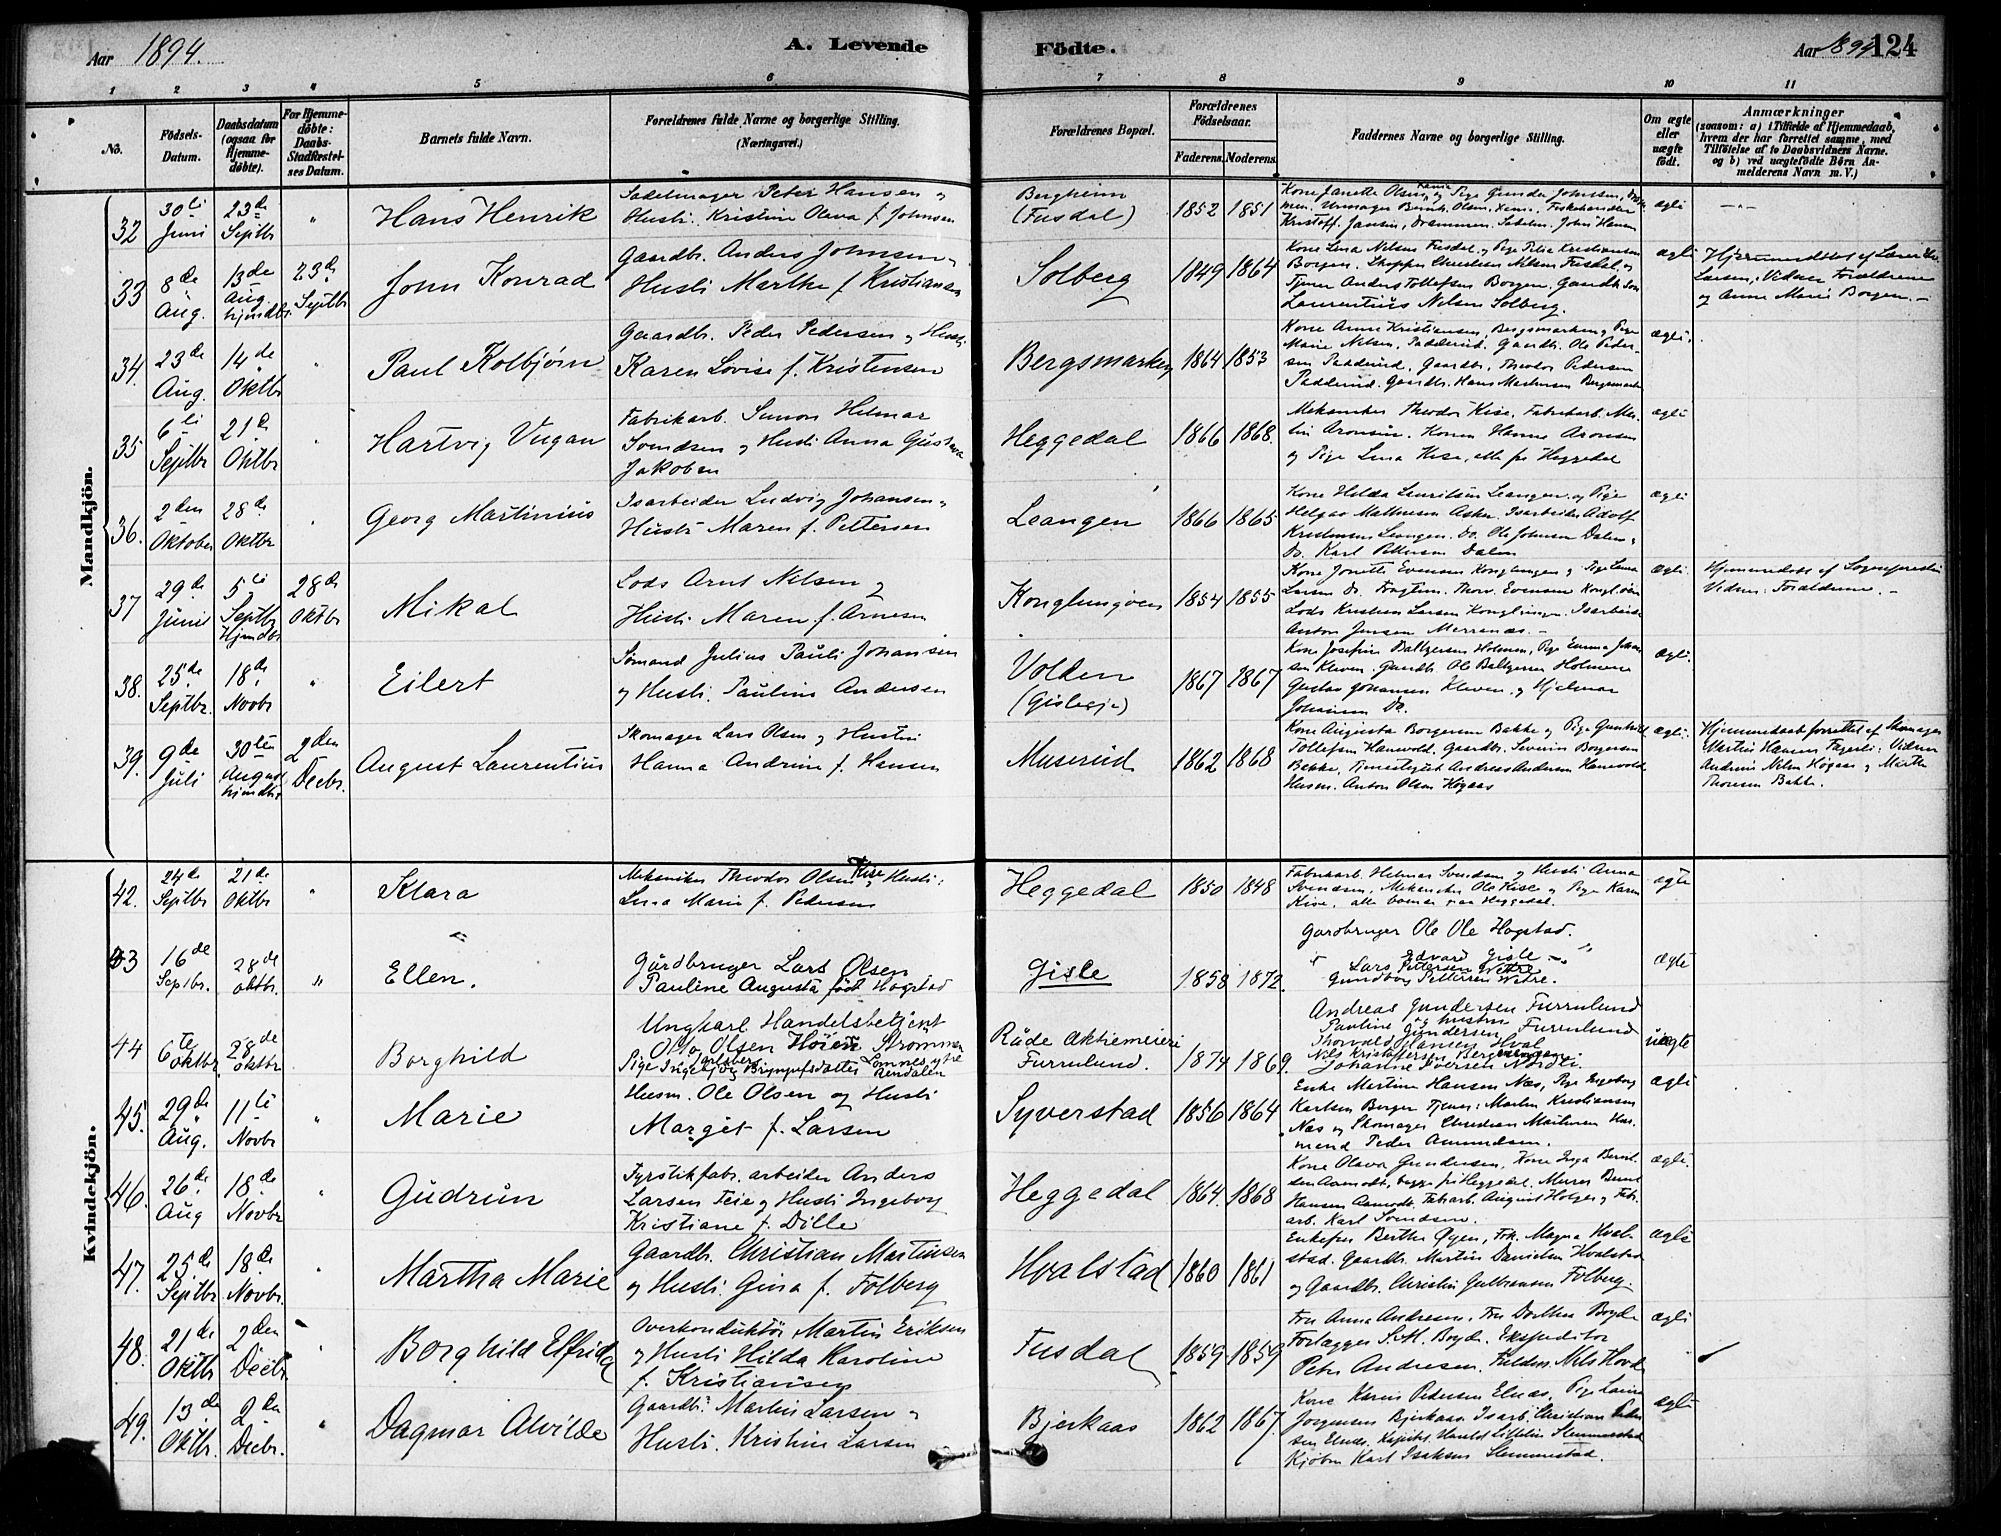 Aar 1894.
A. Levende
Födte.
Aar 1894
124
1 2 3 4 5 6 7 8 9 10 11
No.
Födsels-
Datum.
Daabsdatum
(ogsaa for
Hjemme-
döbte).
For Hjemme-
döbte:
Daabs-
Stadfæstel-
ses Datum.
Barnets fulde Navn.
Forældrenes fulde Navne og borgerlige Stilling.
(Næringsvei.)
Forældrenes Bopæl.
Forældrenes
Födselsaar.
Faderens. Moderens.
Faddernes Navne og borgerlige Stilling.
Om ægte
eller
uægte
födt.
Anmærkninger
(saasom: a) i Tilfælde af Hjemmedaab,
hvem der har forrettet samme, med
Tilföielse af to Daabsvidners Navne.
og b) ved uægtefödte Börn An-
melderens Navn m. V.)
Mandkjön.
32
30te Juni
23de Septbr
"
Hans Henrik
Sadelmager Peter Hansen og
Hustr. Kristine Oleva f. Johnsen
Bergheim
(Fusdal)
1852 1851
ægte
33
8de Aug.
13de Aug. hjmdbt.
23de Septbr
John Konrad
Gaardbr. Anders Johnsen og
Hustr. Marthe f. Kristiansen
Solberg
1849 1864
Kone Lina Nilsen Fusdal og Pige
Tjener Anders Tollefsen Borgen. Gaardbr. Søn
Laurentius Nilsen Solberg.
ægte
Larsen, Vidner Forældrene
og Anne Marie Borgen. –
34.
23de Aug.
14de Oktbr
"
Paul Kolbjørn
Gaardbr. Peder Pedersen og Hustr.
Karen Lovise f. Kristensen
Bergsmarken
1864 1853
Kone Anne Kristiansen, Bergsmarken og Pige
Marie Nilsen, Padderud. Gaardbr. Ole Peder-
sen Padderud. Gaardbr. Theodor Pedersen
Padderud. Gaardbr. Hans Martinsen Bergsmark
ægte
35
6te Septbr
21de Oktbr
"
Hartvig Vugan
Fabrikarb. Simon Helmar
Svendsen og Hustr. Anna Gustava
Jakobsen
Heggedal
1866 1868.
Mekaniker Theodor Kise, Fabrikarb. Mar-
tin Aronsen. Konen Hanna Aronsen
og Pige Lina Kise, alle fra Heggedal
ægte
36.
2den Oktober
28de Oktbr
"
Georg Martinius
Isarbeider Ludvig Johansen og
Hustr. Maren f. Pettersen
Leangen
1866 1865
Kone Hilda Lauritsen Leangen og Pige
Helga Mathiesen Asker. Isarbeider Adolf
Kristensen Leangen. Do. Ole Johnsen Dalen,
Do. Karl Pettersen Dalen
ægte
37
29de Juni
5te Septbr Hjmdbt
28de Oktbr
Mikal
Lods Arnt Nilsen og
Hustr. Maren f. Arnesen
Konglungøen
1854 1855
Lods Kristian Larsen Konglungen. Isarbeider
Anton Jensen Merranæs. –
ægte.
Hjemmedøbt af Sognepresten
Vidner: Forældrene. –
38.
25de Septbr.
18de Novbr
"
Eilert
Sømand Julius Pauli Johansen
og Hustr. Pauline Andersen
Volden
(Gisleøje)
1867 1867
Kone Josefine Baltzersen Holmen, Pige Emma Johan-
sen Kleven. Gaardbr. Ole Baltzersen Holmen
Gustav Johansen Kleven og Hjalmar
Johansen Do.
ægte.
39.
9de Juli
30te August hjmdbt.
2den Decbr.
August Laurentius
Skomager Lars Olsen og Hustru
Hanna Andrine f. Hansen
Muserud
1862 1868
Kone Augusta Borgersen Bakke og Pige Gunhild
Tollefsen Hanevold. Gaardbr. Severin Borgersen
Bakke, Tjenestegut Andreas Andersen Hanevold
Husm. Anton Olsen Högaas
ægte.
Hjemmedaab forrettet af Skomager
Martin Hansen Fagerli: Vidner
Andrine Nilsen Högaas og Marthe
Thoresen Bakke.
Kvindekjön.
42.
24de Septbr
21de Oktbr
"
Klara
Mekaniker Theodor Olsen Kise og Hustr.
Lina Marie f. Pedersen
Heggedal
1850 1848
Fabrikarb. Helmer Svendsen og Hustr. Anna
Svendsen, Mekaniker Ole Kise og Pige Karen
Kise, alle boende paa Heggedal.
ægte
43
16de Septbr.
28de oktbr.
"
Ellen.
Gårdbruger Lars Olsen
Pauline Augusta født Hogstad
Gisle
1858 1872.
Gardbruger Ole Ole Hogstad.
" Edvard Gisle "
Lars Pettersen Wettre
Gundborg Pettersen Wetre.
ægte
44
6te oktbr.
28de oktbr
"
Borghild
Ungkarl Handelsbetjent
Otto Olsen Höien Strömmen
Pige Ingeborg Brynjulfsdatter Lomnes, ytre
Rendalen
Råde Aktiemeieri
Furrulund.
1874 1869.
Andreas Gundersen Furrulund
Pauline Gundersen og hustru Furrulund
Thorvald Hansen Hval
Nils Kristoffersen
Johanne Iversen Nordli
uægte
45.
29de Aug.
11te Novbr
"
Marie
Husm. Ole Olsen og Hustr.
Margit f. Larsen
Syverstad
1856 1864
Enke Martine Hansen Næs, Pige Ingeborg
Karlsen Berger Tjener: Martin Kristiansen
Næs og Skomager Christian Martinsen Hus-
mand Peder Amundsen.
ægte
46.
26de Aug
18de Novbr
"
Gudrun
Fyrstikfabr. arbeider Anders
Larsen Teie og Hustr. Ingeborg
Kristiane f. Dille
Heggedal
1864. 1868
Kone Oleva Gundersen, Kone Inga Bernt-
sen Aamodt, begge fra Heggedal. Murer Bernt
Hansen Aamodt. Fabarb. August Holger og Fab-
arb. Karl Svendsen.
ægte.
47.
25de Septbr
18de Novbr.
"
Martha Marie
Gaardbr. Christian Martinsen
og Hustr. Gina f. Folberg
Hvalstad
1860 1861
Enkefru Berthe Øgen, Frk. Magna Hval-
stad. Gaardbr. Martin Danielsen Hvalstad
og Gaardbr. Christin Gulbransen Folberg.
ægte
48.
21de Oktbr
2den Decbr
"
Borghild Elfrida
Overkonduktør Martin Eriksen
og Hustr. Hilda Karoline
f. Kristiansen
Fusdal
1859 1859
Fru Anna Andresen, Fru Dorthea Bøyde
Forlægger S. M. Bryde. Ekspeditør
Peter Andresen.
ægte
49.
13de Oktbr.
2den Decbr.
"
Dagmar Alvilde
Gaardbr. Martin Larsen og
Hustr. Kristine Larsen
Bjerkaas
1862 1867.
Kone Karen Pedersen Elnæs, Pige Laura
Jørgensen Bjerkaas. Isarb. Christian Peder-
Kjøbm Karl Isaksen Slemmestad.
ægte